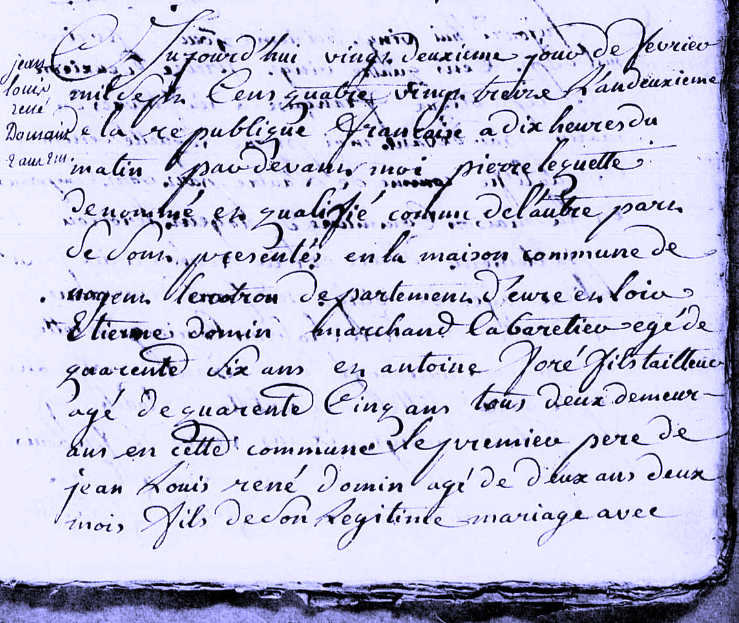 jean
louis
réné
Domain
2 ans 2 m.
Aujourd'hui vingt deuxieme jour de fevrier
mil Sept Cens quatre vingt treize L'an deuxieme
de la republique francaise a dix heures du
matin par devant moi pierre leguette
denommé et qualifié comme de l'autre part
Se Sont presentés en la maison commune de
nogent le rotrou departement d'eure et loir
Etienne domin marchand Cabaretier egé de
quarente Six ans et antoine foré fils tailleur
agé de quarente Cinq ans tous deux demeur-
ans en cette commune Le premier pere de
jean Louis rené domin agé de deux ans deux
mois fils de Son Legitime mariage avec